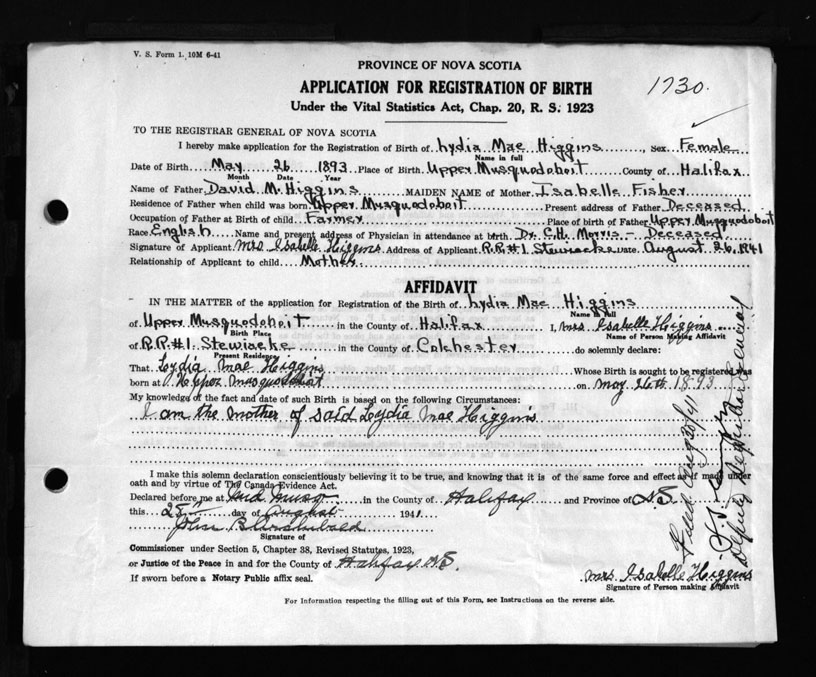 V. S. Form 1. 10M 6-41
PROVINCE OF NOVA SCOTIA
1730.
APPLICATION FOR REGISTRATION OF BIRTH
Under the Vital Statistics Act, Chap. 20, R. S. 1923
TO THE REGISTRAR GENERAL OF NOVA SCOTIA
I hereby make application for the Registration of Birth of Lydia Mae Higgins, Sex Female
Name in full
Date of Birth May 26 1893 Place of Birth Upper Musquodoboit County of Halifax
Month Date Year
Name of Father David M. Higgins MAIDEN NAME of Mother Isabelle Fisher
Residence of Father when child was born Upper Musquodoboit Present address of Father Deceased
Occupation of Father at Birth of child Farmer Place of birth of Father Upper Musquodoboit
Race English Name and present address of Physician in attendance at birth Dr. C.H. Morris - Deceased
Signature of Applicant Mrs Isabelle Higgins Address of Applicant R.R.#1 Stewiacke Date August 26, 1941
Relationship of Applicant to child Mother
AFFIDAVIT
IN THE MATTER of the application for Registration of the Birth of Lydia Mae Higgins
Name in full
of Upper Musquodoboit in the County of Halifax I, Mrs Isabelle Higgins
Birth Place Name of Person Making Affidavit
of R.R.#1 Stewiacke in the County of Colchester do solemnly declare:
Present Residence
That Lydia Mae Higgins Whose Birth is sought to be registered was
born at Upper Musquodoboit on May 26th 1893
My knowledge of the fact and date of such Birth is based on the following Circumstances:
I am the mother of said Lydia Mae Higgins
I make this solemn declaration conscientiously believing it to be true, and knowing that it is of the same force and effect as if made under
oath and by virtue of The Canada Evidence Act.
Declared before me at Mid Musq in the County of Halifax and Province of N.S.
this 28th day of August 1941
John B Archibald
Signature of
Commissioner under Section 5, Chapter 38, Revised Statutes, 1923,
or Justice of the Peace in and for the County of Halifax N.S.
If sworn before a Notary Public affix seal.
Mrs Isabelle Higgins
Signature of Person making Affidavit
For Information respecting the filling out of this Form, see Instructions on the reverse side.
Filed Aug 30/41
Deputy Registrar General